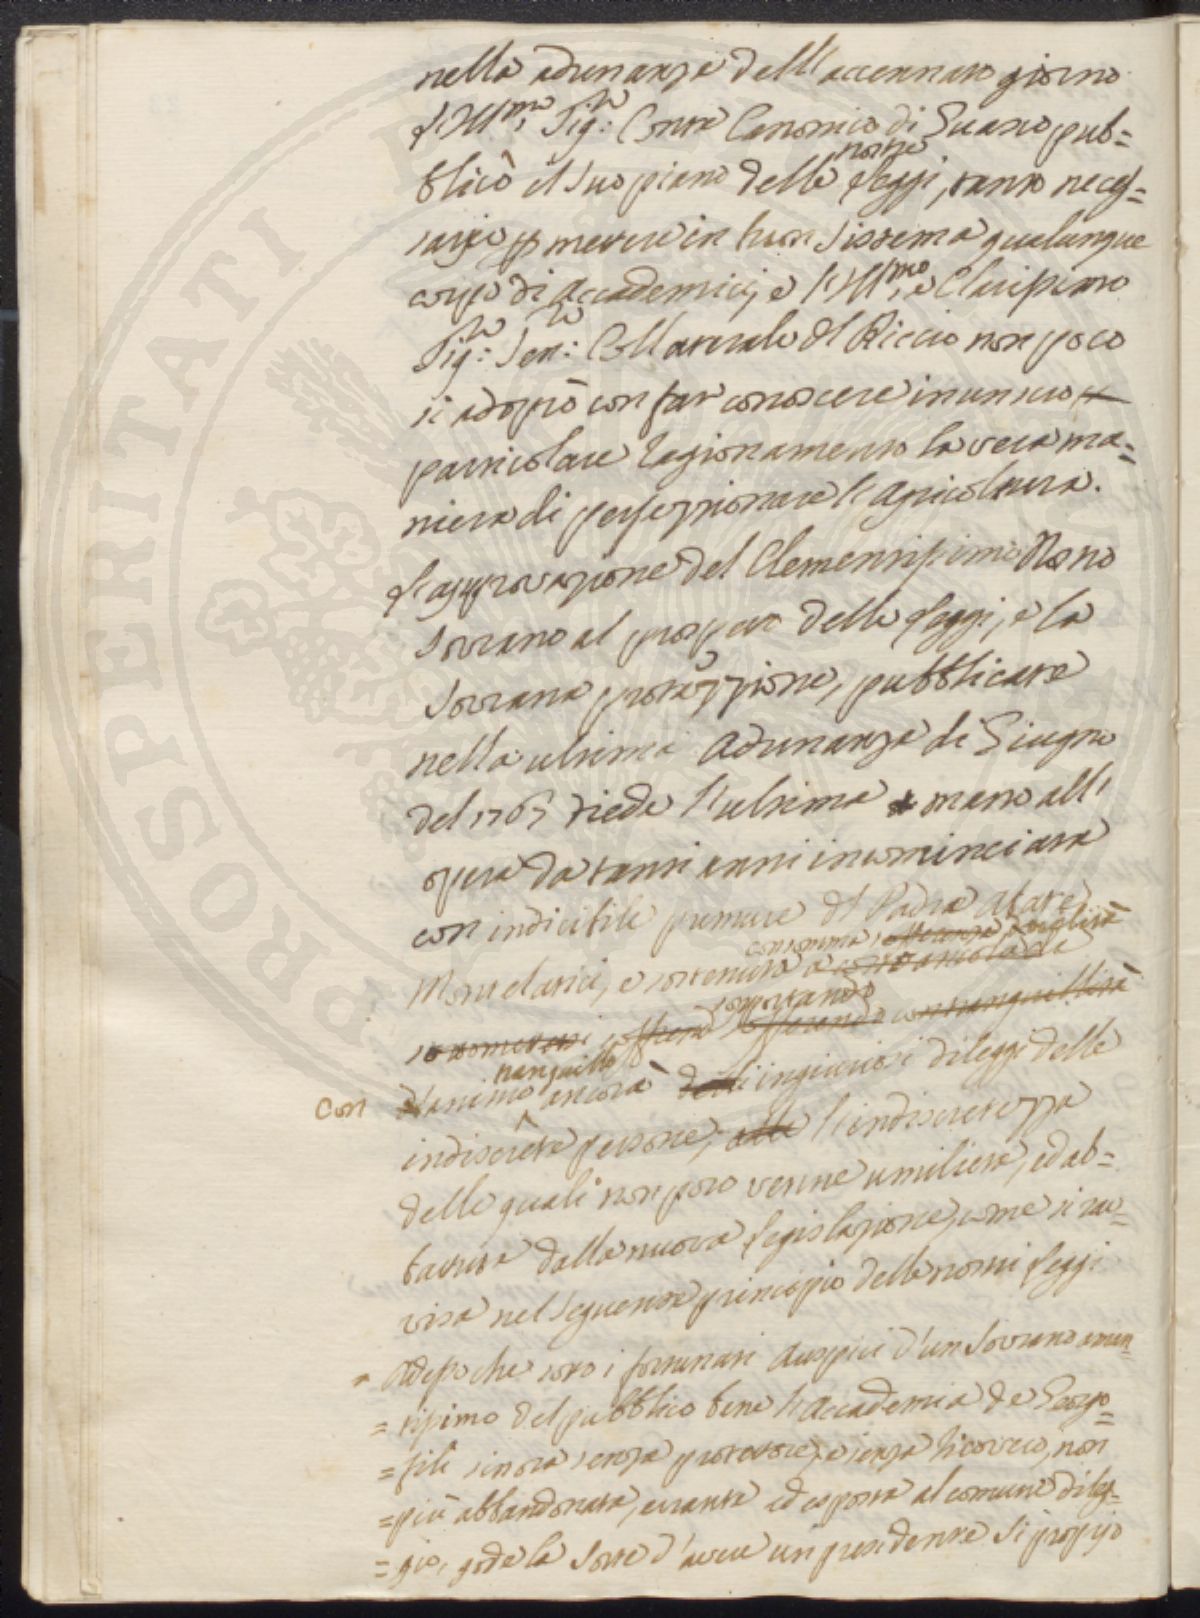 nella adunanza dell'accennato giorno
l'Ill.mo Sig:re Conte Canonico di Guaro pub=
blicò il suo piano delle nostre Leggi, tanto neces=
sario p mettere in buon sistema qualunque
corpo di Accademici, e l'Ill.mo, e Clarissimo
Sig:re Sen:re Collaterale Del Riccio non poco
si adoprò con far conoscere in un suo
particolare Ragionamento la vera ma=
niera di perfezzionare l'Agricoltura.
L'approvazione del Clementissimo Nostro
Sovrano al prospetto delle Leggi, e la
Sovrana protezzione, pubblicate
nella ultima Adunanza di Giugno
del 1767 diede l'ultima mano all'
opera da tanti anni incominciata
con indicibile premure Dl Padre Abate
Montelatici, e sostenuta
con somma sofferenza
sopportando
tranquillo
con animo ancora ingiuriosi dileggi delle
indiscrete persone, l'indiscretezza
delle quali non poco venne umiliata, ed ab=
battuta dalla nuova Legislazione, come si rav=
visa nel seguente principio delle nostre Leggi
" Adesso che sotto i fortunati Auspici d'un Sovrano aman=
= tissimo del pubblico bene l'Accademia de Georgo=
= fili sinora senza protettore, e senza ricovero, non
= più abbandonata, errante ed esposta al comune dileg=
= gio, gode la sorte d'avere un presidente di proprio
PROSPERITATI